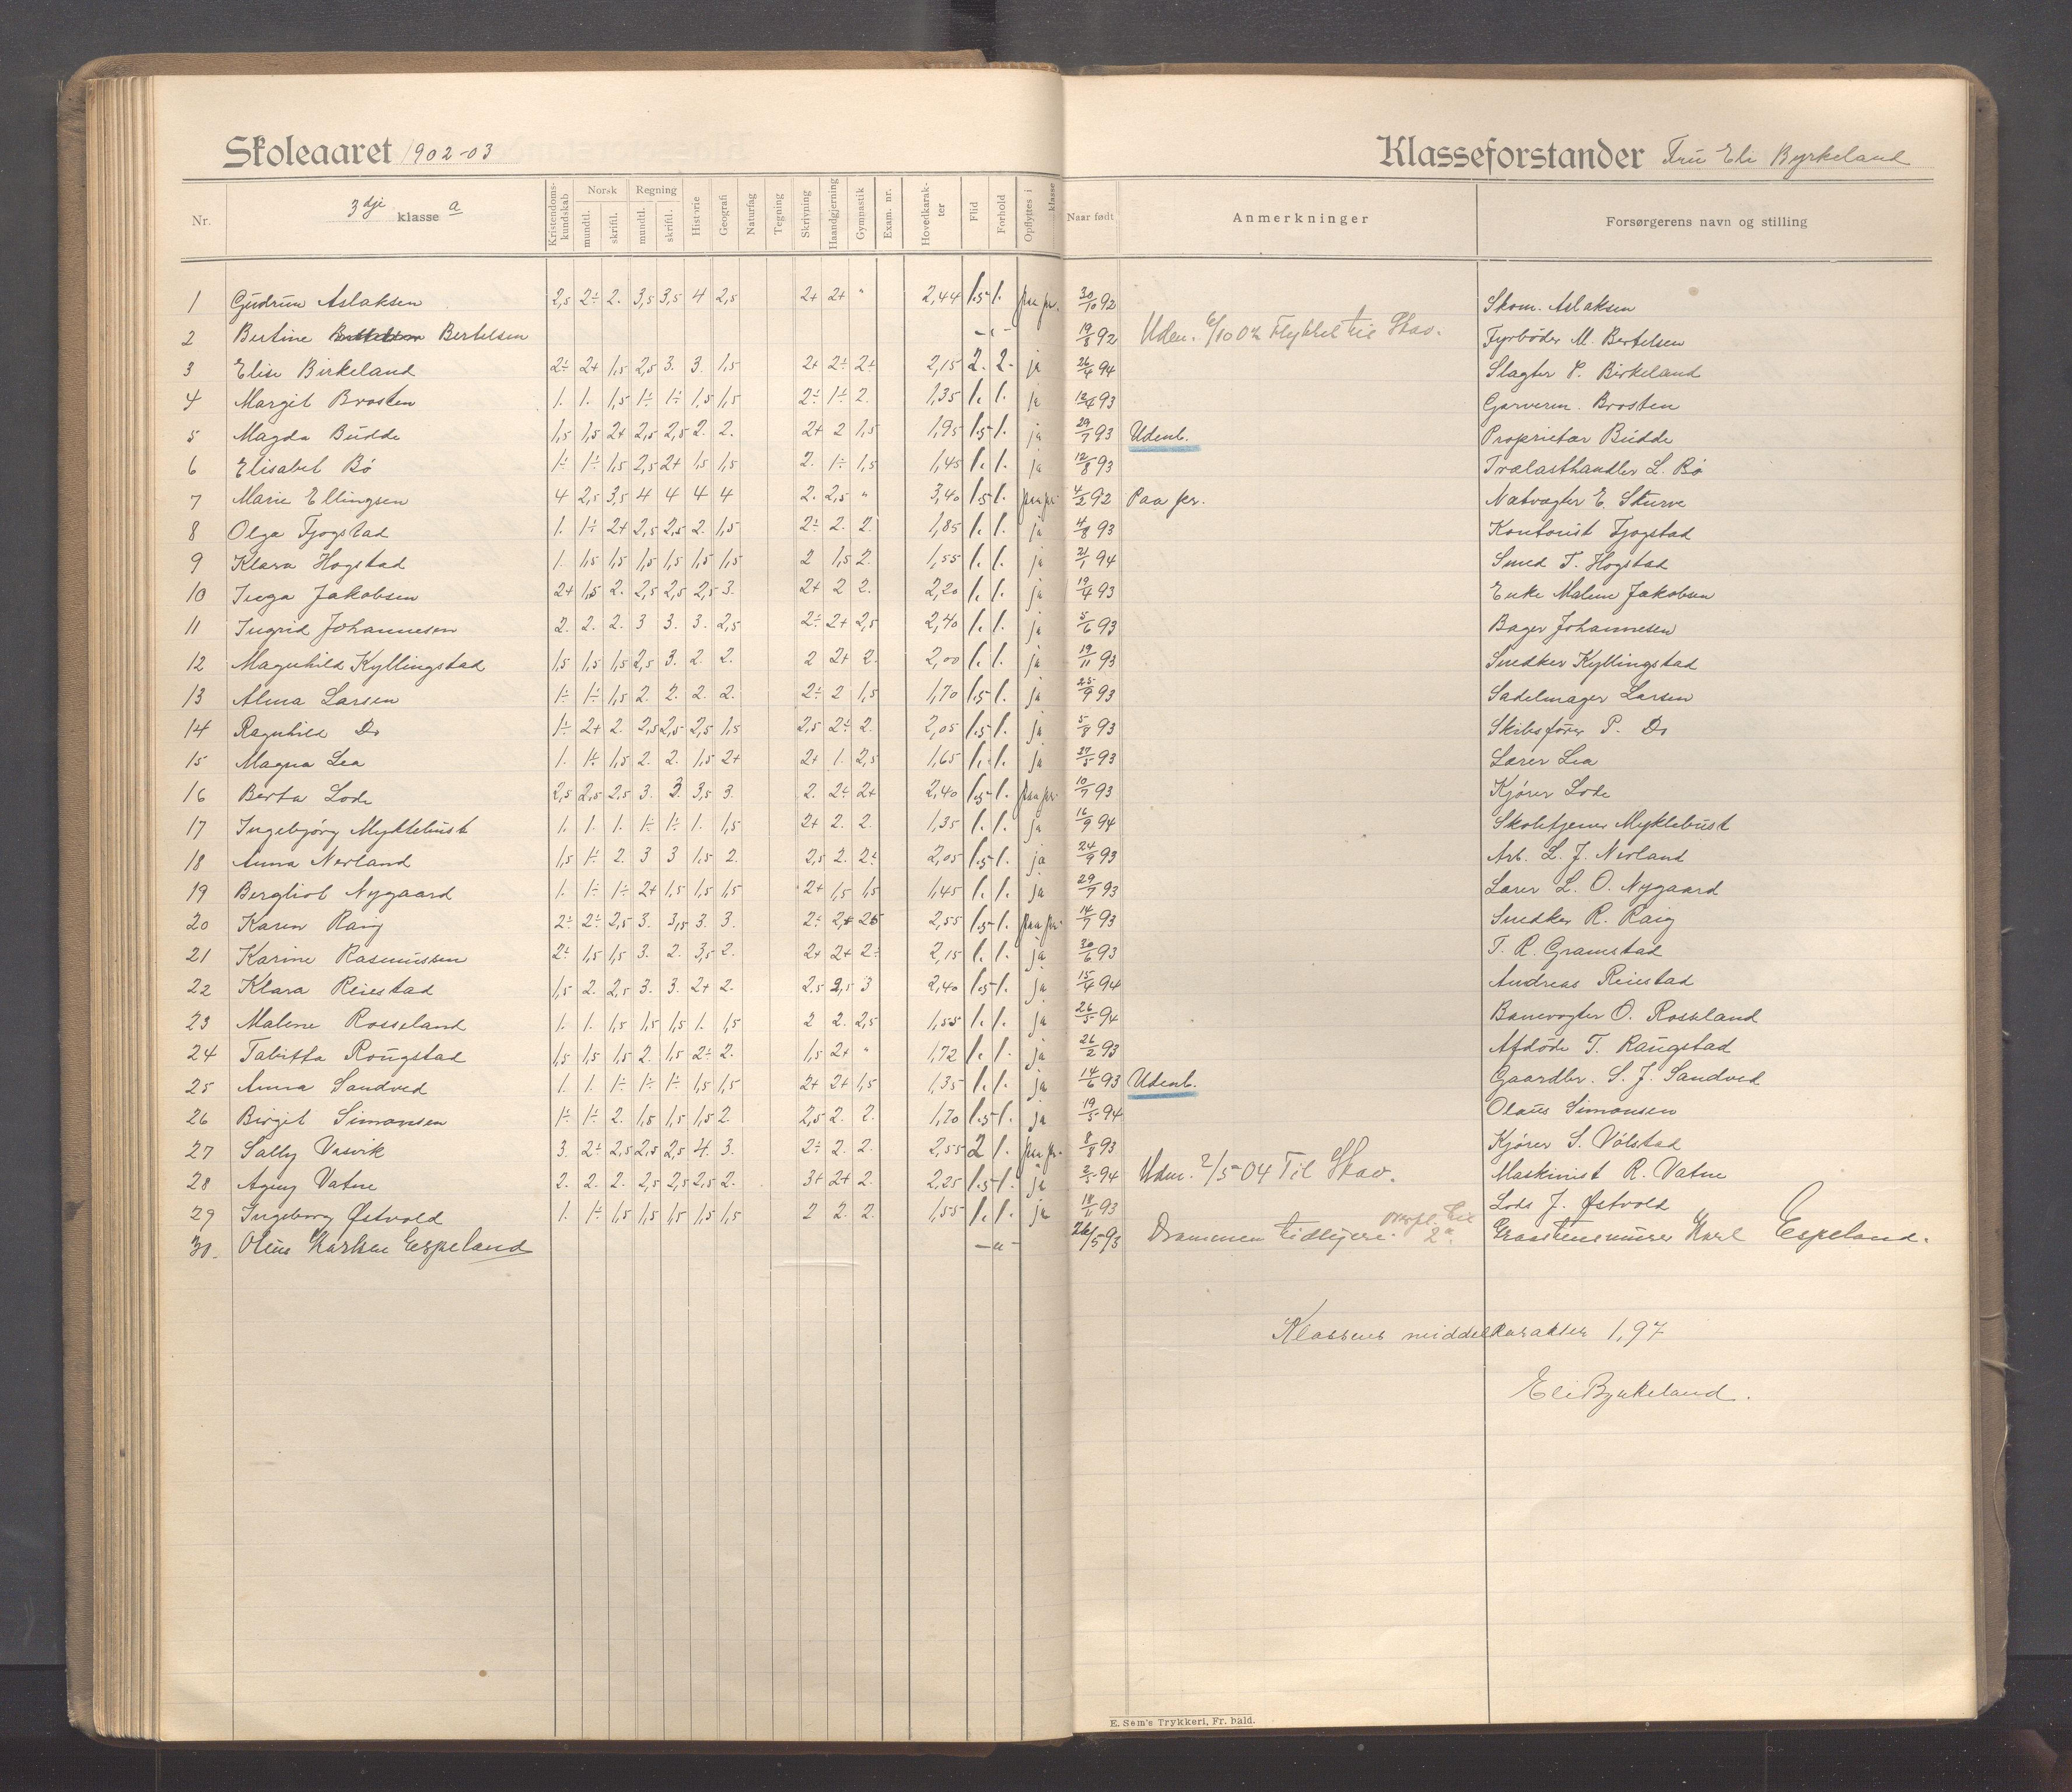 Skoleaaret 1902-03
Klasseforstander Fru Eli Byrkeland
Nr. 3dje klasse a Kristendomskundskab Norsk mundtl. skriftl. Regning mundtl. skriftl. Historie Geografi Naturfag Tegning Skrivning Haandgjerning Gymnastik Exam. nr. Hovedkarakter Flid Forhold Opflyttes i klasse Naar født Anmerkninger Forsørgerens navn og stilling
1 Gudrun Aslaksen 2,5 2÷ 2. 3,5 3,5 4 2,5 2+ 2+ " 2,44 1.5 1. paa pr. 30/10 92 Skom. Aslaksen
2 Bertine Bertelsen -"- 19/8 92 Uden. 6/10 02 Flyttet til Stav. Fyrbøder M. Bertelsen
3 Elise Birkeland 2÷ 2+ 1,5 2,5 3. 3. 1,5 2+ 2÷ 2÷ 2,15 2. 2- ja 26/4 94 Slagter P. Birkeland
4 Margit Brosten 1. 1. 1,5 1÷ 1÷ 1,5 1,5 2÷ 1÷ 2. 1,35 1. 1. ja 12/4 93 Garverm. Brosten
5 Magda Budde 1,5 1,5 2+ 2,5 2,5 2. 2. 2+ 2 1,5 1,95 1.5 1. ja 29/7 93 Udenb. Proprietær Budde
6 Elisabet Bø 1÷ 1÷ 1,5 2,5 2+ 1,5 1,5 2. 1÷ 1,5 1,45 1. 1. ja 12/8 93 Trælasthandler L. Bø
7 Marie Ellingsen 4 2,5 3,5 4 4 4 4 2. 2,5 " 3,40 1.5 1. paa pr. 4/2 92 Paa pr. Natvagter E. Sturve
8 Olga Fjogstad 1. 1÷ 2+ 2,5 2,5 2. 1,5 2÷ 2. 2. 1,85 1. 1. ja 4/8 93 Kontorist Fjogstad
9 Klara Hogstad 1. 1,5 1,5 1,5 1,5 1,5 1,5 2 1,5 2. 1,55 1. 1. ja 21/1 94 Smed T. Hogstad
10 Inga Jakobsen 2+ 1,5 2. 2,5 2,5 2,5 3. 2+ 2 2. 2,20 1. 1. ja 19/4 93 Enke Malene Jakobsen
11 Ingrid Johannesen 2. 2. 2. 3 3. 3. 2,5 2÷ 2+ 2,5 2,40 1. 1. ja 5/6 93 Bager Johannesen
12 Magnhild Kyllingstad 1,5 1,5 1,5 2,5 3. 2. 2. 2 2+ 2. 2,00 1. 1. ja 19/11 93 Snedker Kyllingstad
13 Alma Larsen 1÷ 1÷ 1,5 2. 2. 2. 2. 2÷ 2 1,5 1,70 1.5 1. ja 25/9 93 Sadelmager Larsen
14 Ragnhild Do 1÷ 2+ 2. 2,5 2,5 2,5 1,5 2,5 2÷ 2. 2,05 1.5 1. ja 5/8 93 Skibsfører P. Do
15 Magna Lea 1. 1÷ 1,5 2. 2. 1,5 2+ 2+ 1. 2,5 1,65 1. 1. ja 27/5 93 Lærer Lea
16 Berta Lode 2,5 2,5 2,5 3. 3. 3,5 3. 2. 2÷ 2+ 2,40 1.5 1. paa pr. 10/7 93 Kjører Lode
17 Ingebjørg Myklebust 1. 1. 1. 1÷ 1÷ 1. 1,5 2+ 2. 2. 1,35 1. 1. ja 16/9 94 Skoletjener Myklebust
18 Anna Nerland 1,5 1÷ 2. 3 3 1,5 2. 2,5 2. 2÷ 2,05 1.5 1. ja 24/9 93 Arb. L. J. Nerland
19 Bergliot Nygaard 1. 1÷ 1÷ 2+ 1,5 1,5 1,5 2+ 1,5 1,5 1,45 1. 1. ja 29/7 93 Lærer L. O. Nygaard
20 Karen Raig 2÷ 2÷ 2,5 3. 3,5 3. 3. 2÷ 2+ 2,5 2,55 1.5 1. paa pr. 14/7 93 Snedker R. Raig
21 Karine Rasmussen 2÷ 1,5 1,5 3. 2. 3,5 2. 2+ 2+ 2÷ 2,15 1. 1. ja 30/6 93 T. R. Gramstad
22 Klara Reiestad 1,5 2. 2,5 3. 3. 2+ 2. 2,5 2,5 3 2,40 1.5 1. ja 15/4 94 Andreas Reiestad
23 Malene Rosseland 1. 1. 1,5 1,5 1,5 1. 1,5 2 2. 2,5 1,55 1. 1. ja 26/5 94 Banevogter O. Rosseland
24 Tabitta Rougstad 1,5 1,5 1,5 2. 1,5 2÷ 2. 1,5 2+ " 1,72 1. 1. ja 26/2 93 Afdøde T. Raugstad
25 Anna Sandved 1. 1. 1÷ 1÷ 1÷ 1,5 1,5 2+ 2+ 1,5 1,35 1. 1. ja 14/6 93 Udenb. Gaardbr. S. J. Sandved
26 Birgit Simonsen 1÷ 1÷ 2. 1,5 1,5 1,5 2. 2,5 2. 2. 1,70 1.5 1. ja 19/5 94 Olaus Simonsen
27 Sally Vasvik 3. 2÷ 2,5 2,5 2,5 4. 3. 2÷ 2. 2. 2,55 2 1. paa pr. 8/8 93 Kjører S. Vølstad
28 Agny Vatne 2. 2. 2. 2,5 2,5 2,5 2. 3+ 2+ 2. 2,25 1.5 1. ja 2/5 94 Uden. 2/5-04 Til Stav. Maskinist R. Vatne
29 Ingeborg Østvold 1. 1÷ 1,5 1,5 1,5 1,5 1,5 2 2. 2. 1,55 1. 1. ja 18/11 93 Lods J. Østvold
30. Espeland -"- 26/5 93 Drammen tidligere. til 2a. Graastensmurer Karl Espeland.
Klassens middelkarakter 1,97
Eli Byrkeland.
E. Sem's Trykkeri, Fr. hald.